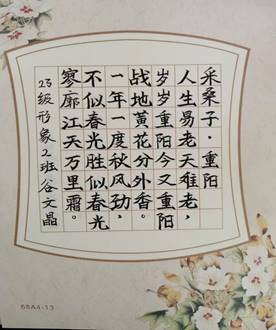 采桑子·重阳
人生易老天难老，
岁岁重阳今又重阳
战地黄花分外香。
一年一度秋风劲，
不似春光胜似春光
寥廓江天万里霜。
23级形象2班谷文晶
68A4-13